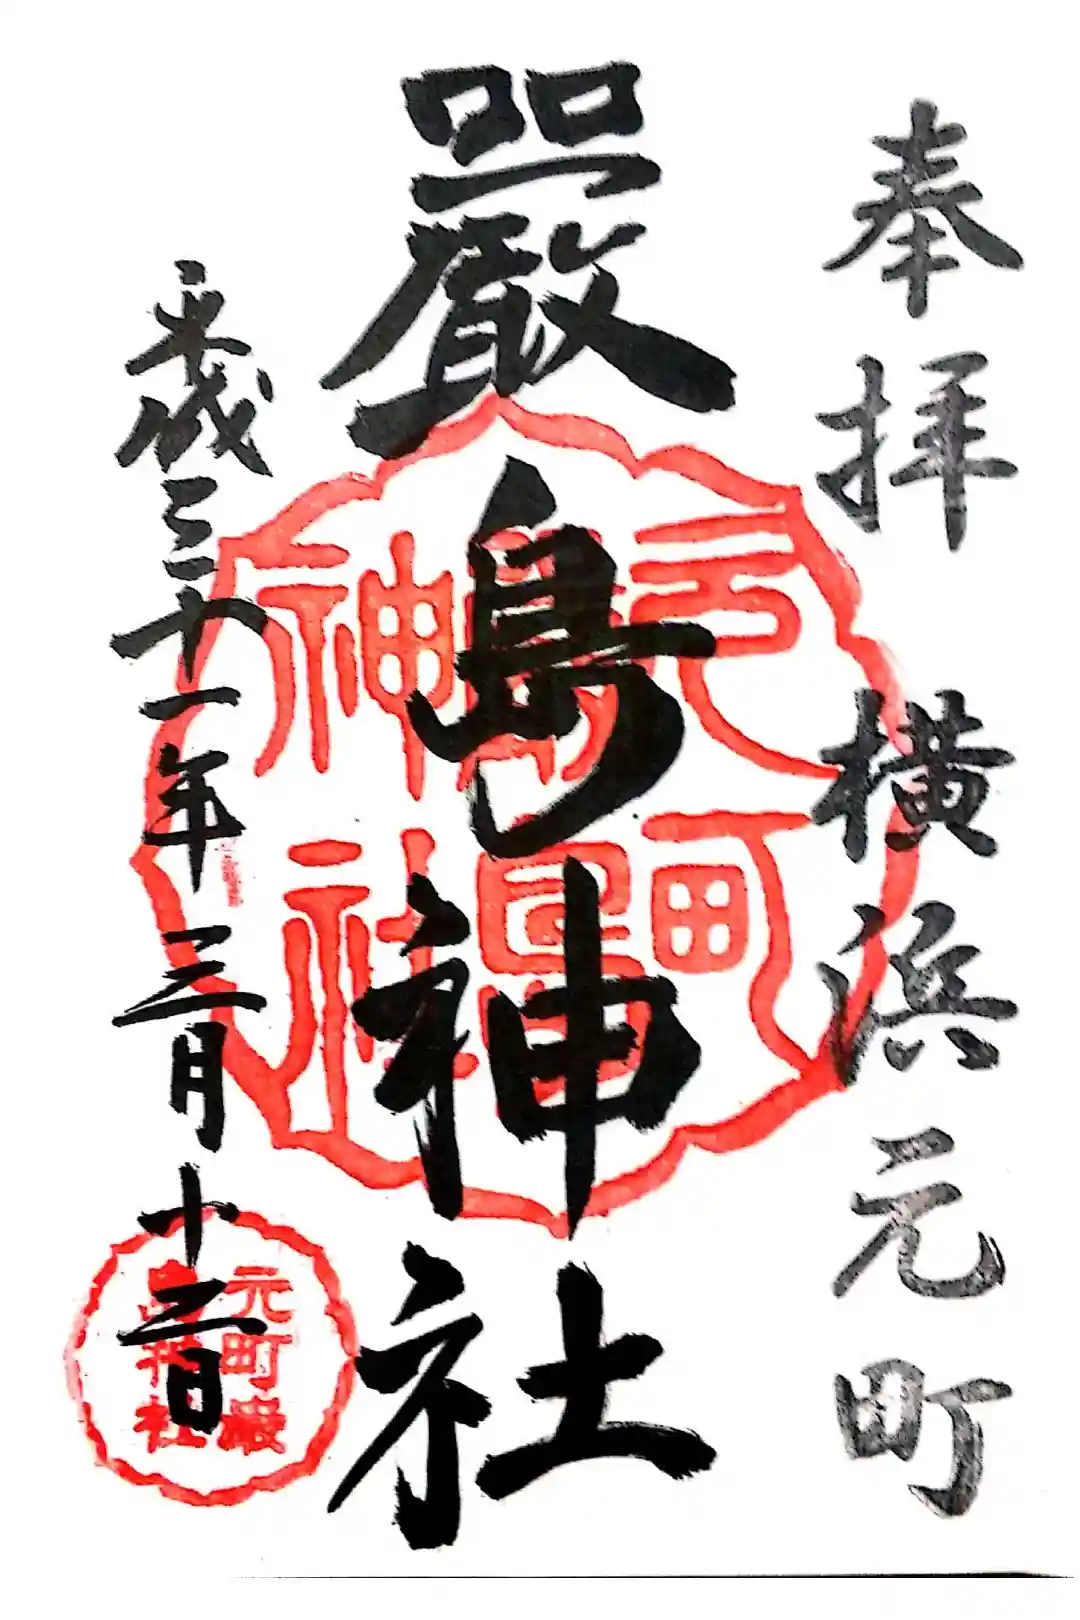 奉拝 横浜元町
嚴島神社
平成三十一年三月十二日
元町嚴
島神社
元町嚴
島神社